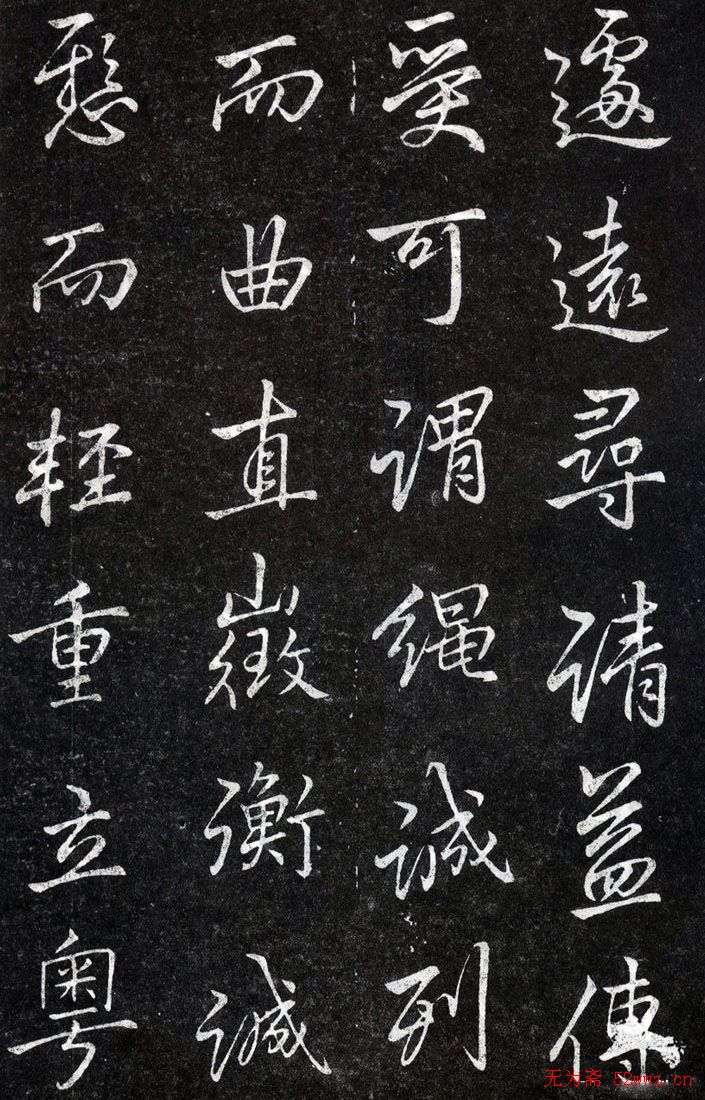 遽遠尋請益傳
受可謂繩誠列
而曲直徵衡誠
懸而輕重立粤
无为斋 52wwz.cn